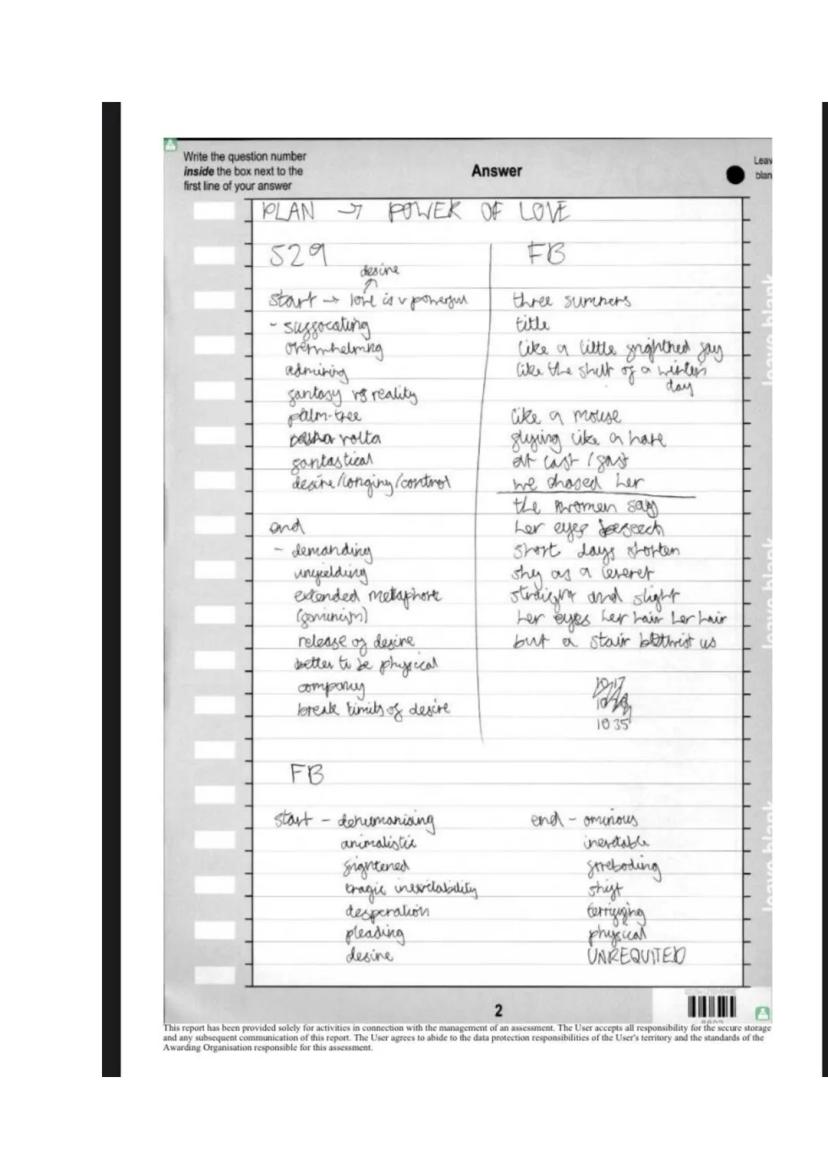 Write the question number
inside the box next to the
first line of your answer
Answer
Leav
blan
PLAN → POWER OF LOVE
S29
desire
↑
start → love is v powerful
- suffocating
overwhelming
admiring
fantasy vs reality
palm-tree
volta
fantastical
desire/longing/control
end
- demanding
unyielding
extended metaphore
(feminism)
release of desire
better to be physical
company
break limits of desire
FB
three summers
title
like a little frightned fay
like the shut of a winters
day
like a mouse
flying like a hare
at last / fast
we chased her
the women say
her eyes beseech
short days shorten
shy as a leveret
straight and slight
her eyes her hair her hair
but a stair betwixt us
1035
FB
start - dehumanising
animalistic
frightened
tragic inevitability
desperation
pleading
desire
end - ominous
inevitable
foreboding
shift
terrifying
physical
UNREQUITED
leave blank
leave blank
leave blank
2
This report has been provided solely for activities in connection with the management of an assessment. The User accepts all responsibility for the secure storage
and any subsequent communication of this report. The User agrees to abide to the data protection responsibilities of the User's territory and the standards of the
Awarding Organisation responsible for this assessment.